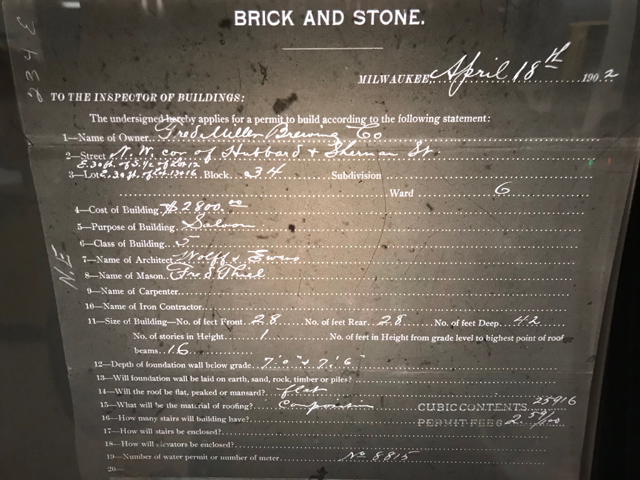 BRICK AND STONE.
234 E
MILWAUKEE, April 18th 1902
TO THE INSPECTOR OF BUILDINGS:
The undersigned hereby applies for a permit to build according to the following statement:
1—Name of Owner. Fred Miller Brewing Co
2—Street N.W. cor of Hubbard & Sherman St.
E. 30 ft. of S. 1/2 of Lot 12
3—Lot E. 30 ft. of Lot 13 & 16. Block. 234 Subdivision
Ward 6
4—Cost of Building. $2800.00
5—Purpose of Building. Saloon
6—Class of Building.
N.E.
7—Name of Architect Wolff & Ewens
8—Name of Mason. Fred Thiel
9—Name of Carpenter.
10—Name of Iron Contractor.
11—Size of Building—No. of feet Front. 28 No. of feet Rear. 28 No. of feet Deep. 42
No. of stories in Height. 1 No. of feet in Height from grade level to highest point of roof
beams. 16
12—Depth of foundation wall below grade 7'0" & 7'6"
13—Will foundation wall be laid on earth, sand, rock, timber or piles?
14—Will the roof be flat, peaked or mansard? flat
15—What will be the material of roofing? Composition
CUBIC CONTENTS 25916
16—How many stairs will building have?
PERMIT FEE $ 2.59/100
17—How will stairs be enclosed?
18—How will elevators be enclosed?
19—Number of water permit or number of meter No 8815
20—